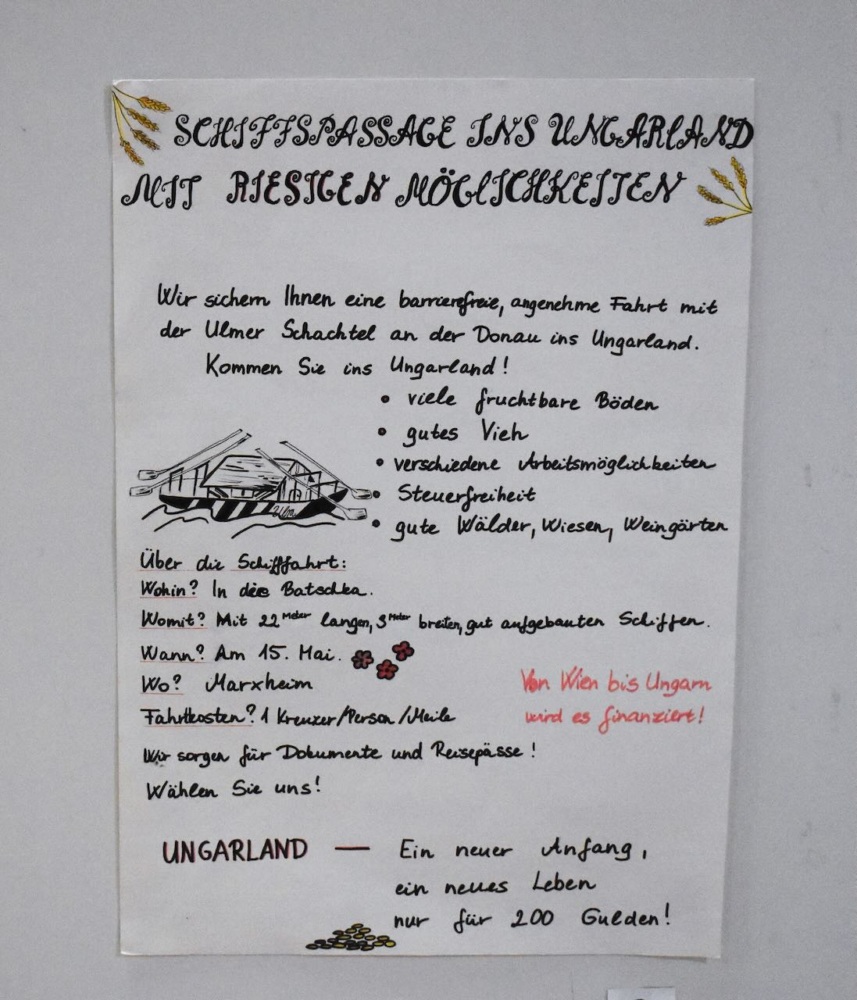 SCHIFFSPASSAGE INS UNGARLAND
MIT RIESIGEN MÖGLICHKEITEN
Wir sichern Ihnen eine barrierefreie, angenehme Fahrt mit
der Ulmer Schachtel an der Donau ins Ungarland.
Kommen Sie ins Ungarland!
• viele fruchtbare Böden
• gutes Vieh
• verschiedene Arbeitsmöglichkeiten
• Steuerfreiheit
• gute Wälder, Wiesen, Weingärten
Ulm
Über die Schifffahrt:
Wohin? In die Batschka.
Womit? Mit 22 Meter langen, 3 Meter breiten, gut aufgebauten Schiffen.
Wann? Am 15. Mai.
Wo? Marxheim
Fahrtkosten? 1 Kreuzer/Person/Meile
Von Wien bis Ungarn
wird es finanziert!
Wir sorgen für Dokumente und Reisepässe!
Wählen Sie uns!
UNGARLAND — Ein neuer Anfang,
ein neues Leben
nur für 200 Gulden!